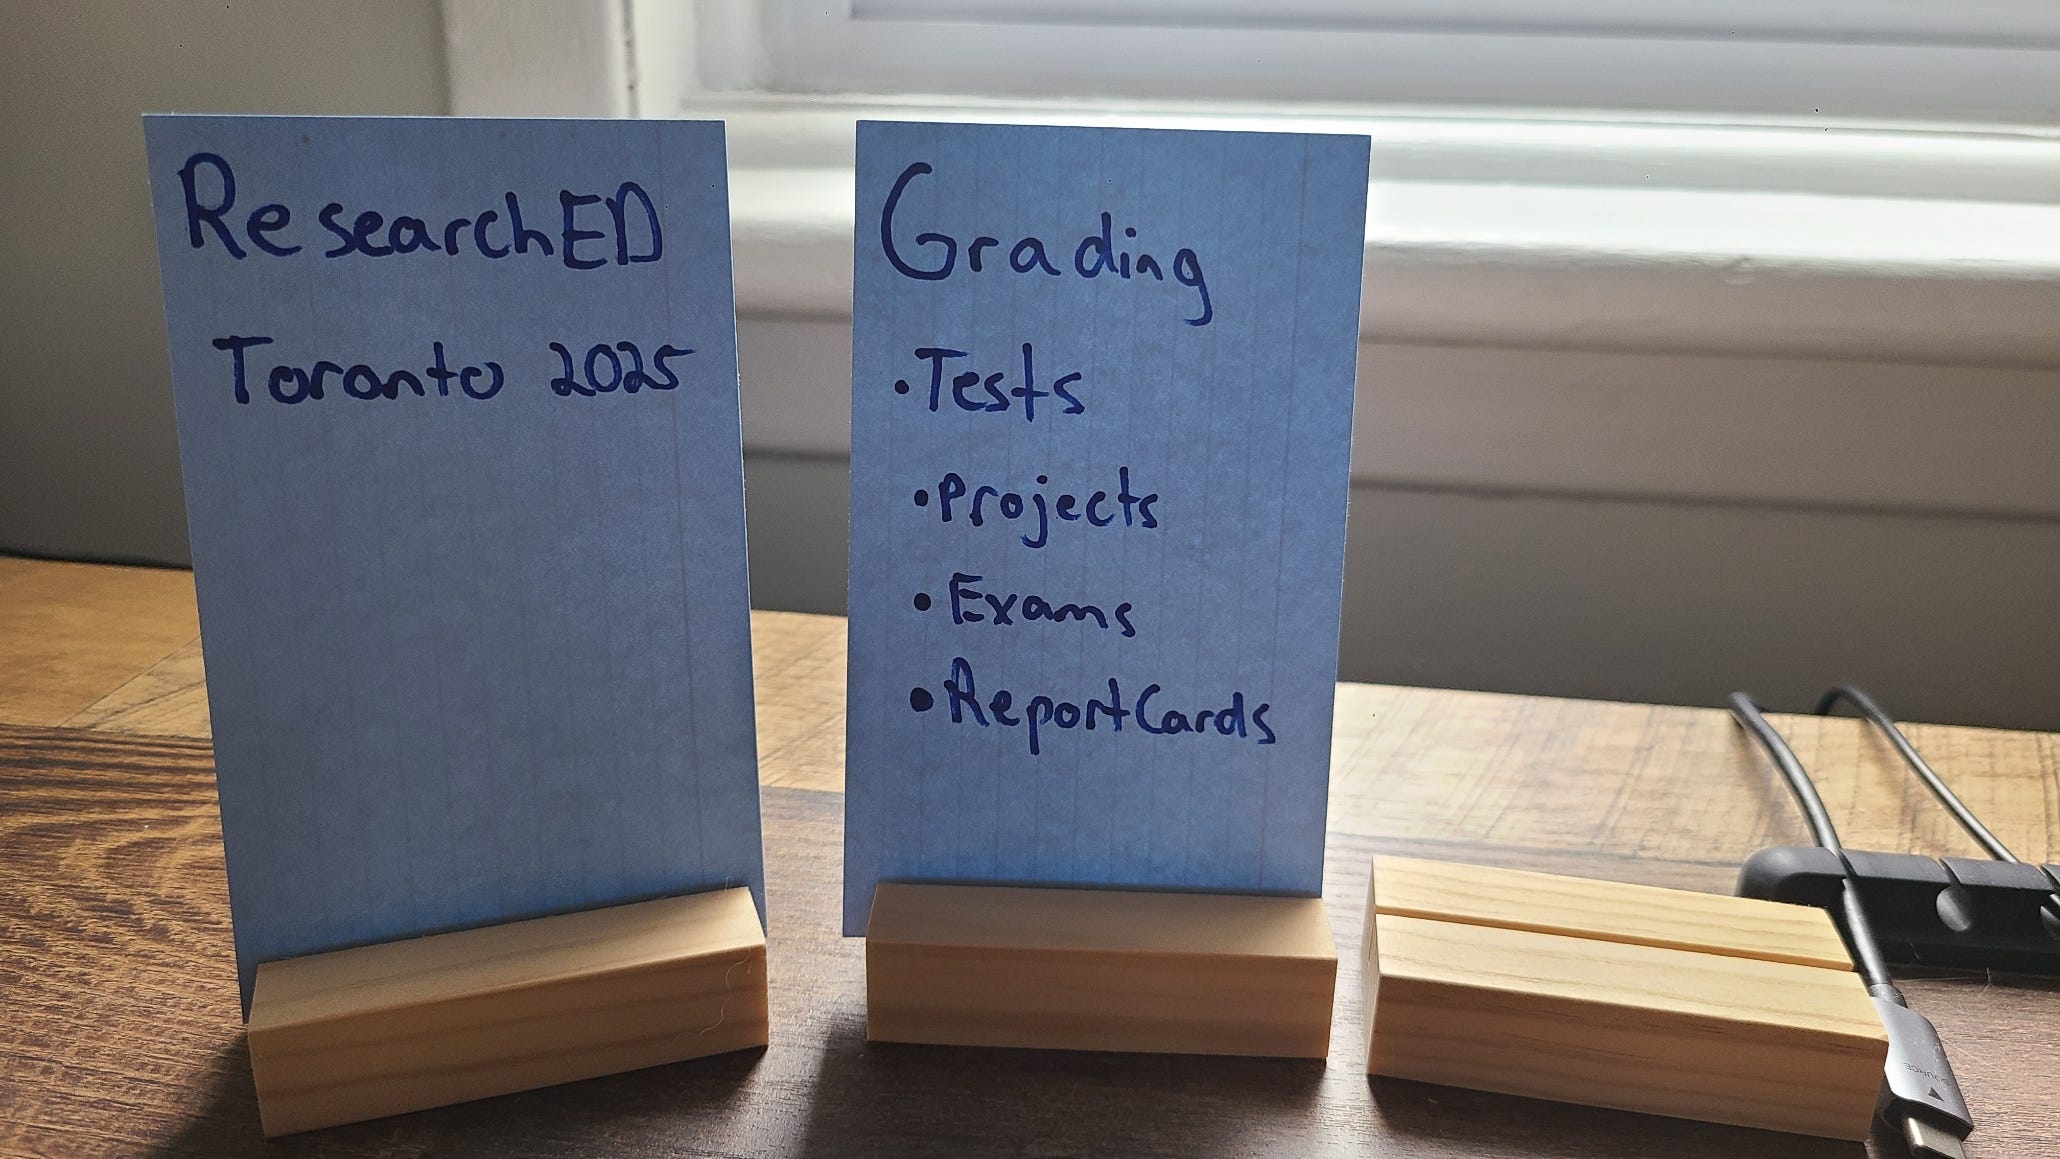 ResearchED
Toronto 2025
Grading
• Tests
• Projects
• Exams
• Report Cards
SOURCE